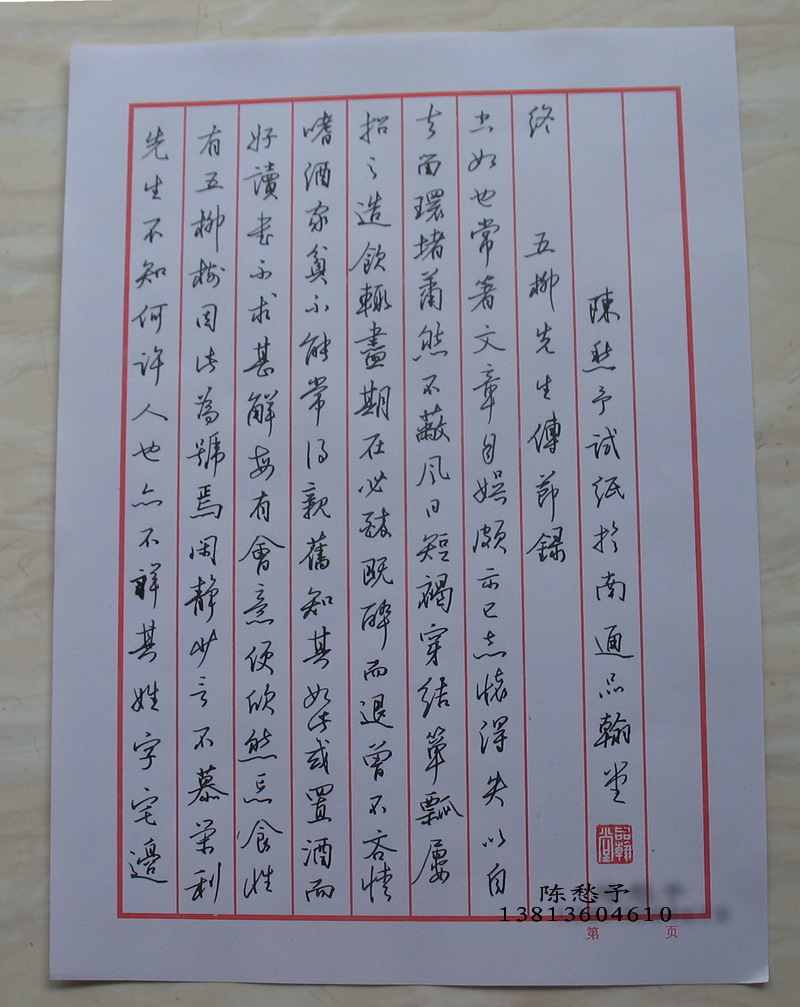 先生不知何許人也亦不詳其姓字宅邊
有五柳樹因此為號焉閑靜少言不慕榮利
好讀書不求甚解每有會意便欣然忘食性
嗜酒家貧不能常得親舊知其如此或置酒而
招之造飲輒盡期在必醉既醉而退曾不吝情
去留環堵蕭然不蔽風日短褐穿結簞瓢屢
空如也常著文章自娛頗示己志懷得失以自
終 五柳先生傳節錄
陳愁予試紙於南通品翰堂
品翰堂
陈愁予
13813604610
第 页